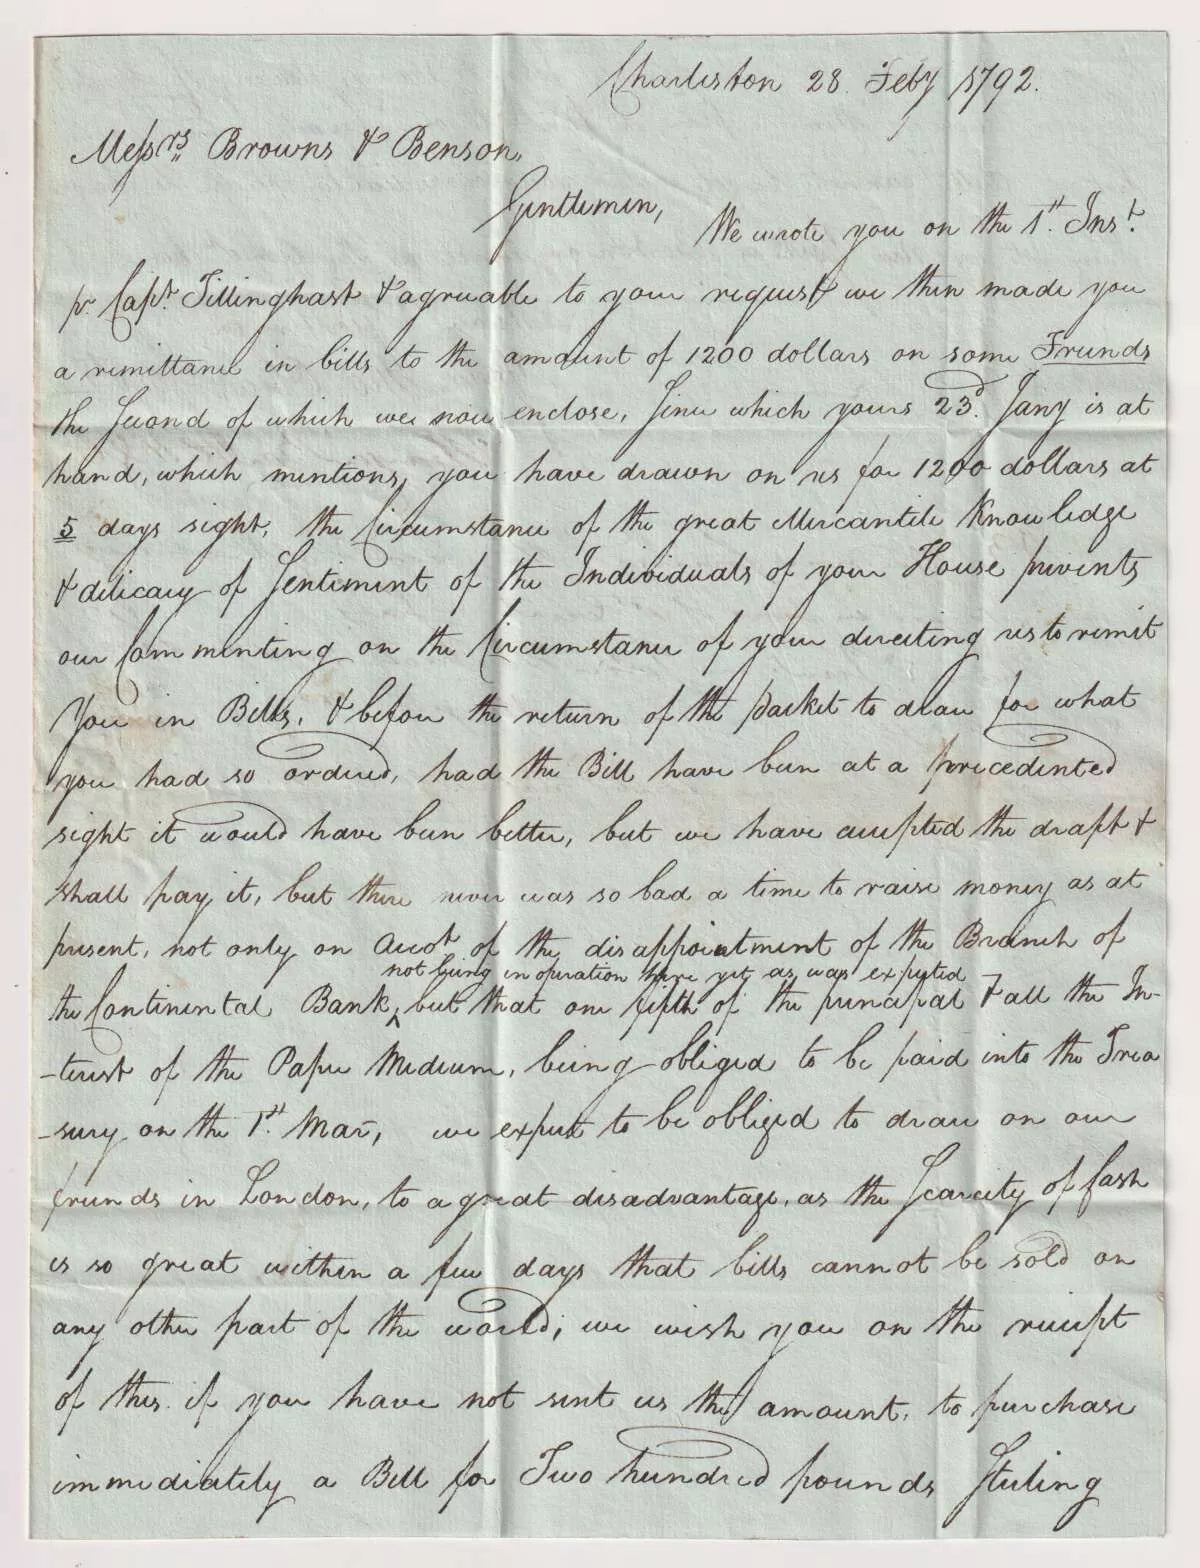 Charleston 28 Feby 1792.
Messrs Browns & Benson,
Gentlemen,
We wrote you on the 1st Inst.
pr Capt. Tillinghast & agreeable to your request we then made you
a remittance in bills to the amount of 1200 dollars on some Friends
the Second of which we now enclose, Since which yours 23d. Jany is at
hand, which mentions, you have drawn on us for 1200 dollars at
5 days sight, the Circumstance of the great Mercantile Knowledge
& delicacy of Sentiment of the Individuals of your House prevents
our Commenting on the Circumstance of your directing us to remit
You in Bills, & before the return of the packet to draw for what
you had so ordered, had the Bill have been at a precedented
sight it would have been better, but we have accepted the draft &
shall pay it, but there never was so bad a time to raise money as at
present, not only on Accot of the disappointment of the Branch of
not being in operation here yet as was expected
the Continental Bank, but that one fifth of the principal & all the In-
-terest of the Paper Medium, being obliged to be paid into the Trea
-sury on the 1st. Mar, we expect to be obliged to draw on our
friends in London, to a great disadvantage, as the Scarcity of Cash
is so great within a few days that bills cannot be sold on
any other part of the world; we wish you on the receipt
of this if you have not sent us the amount, to purchase
immediately a Bill for Two hundred pounds Sterling